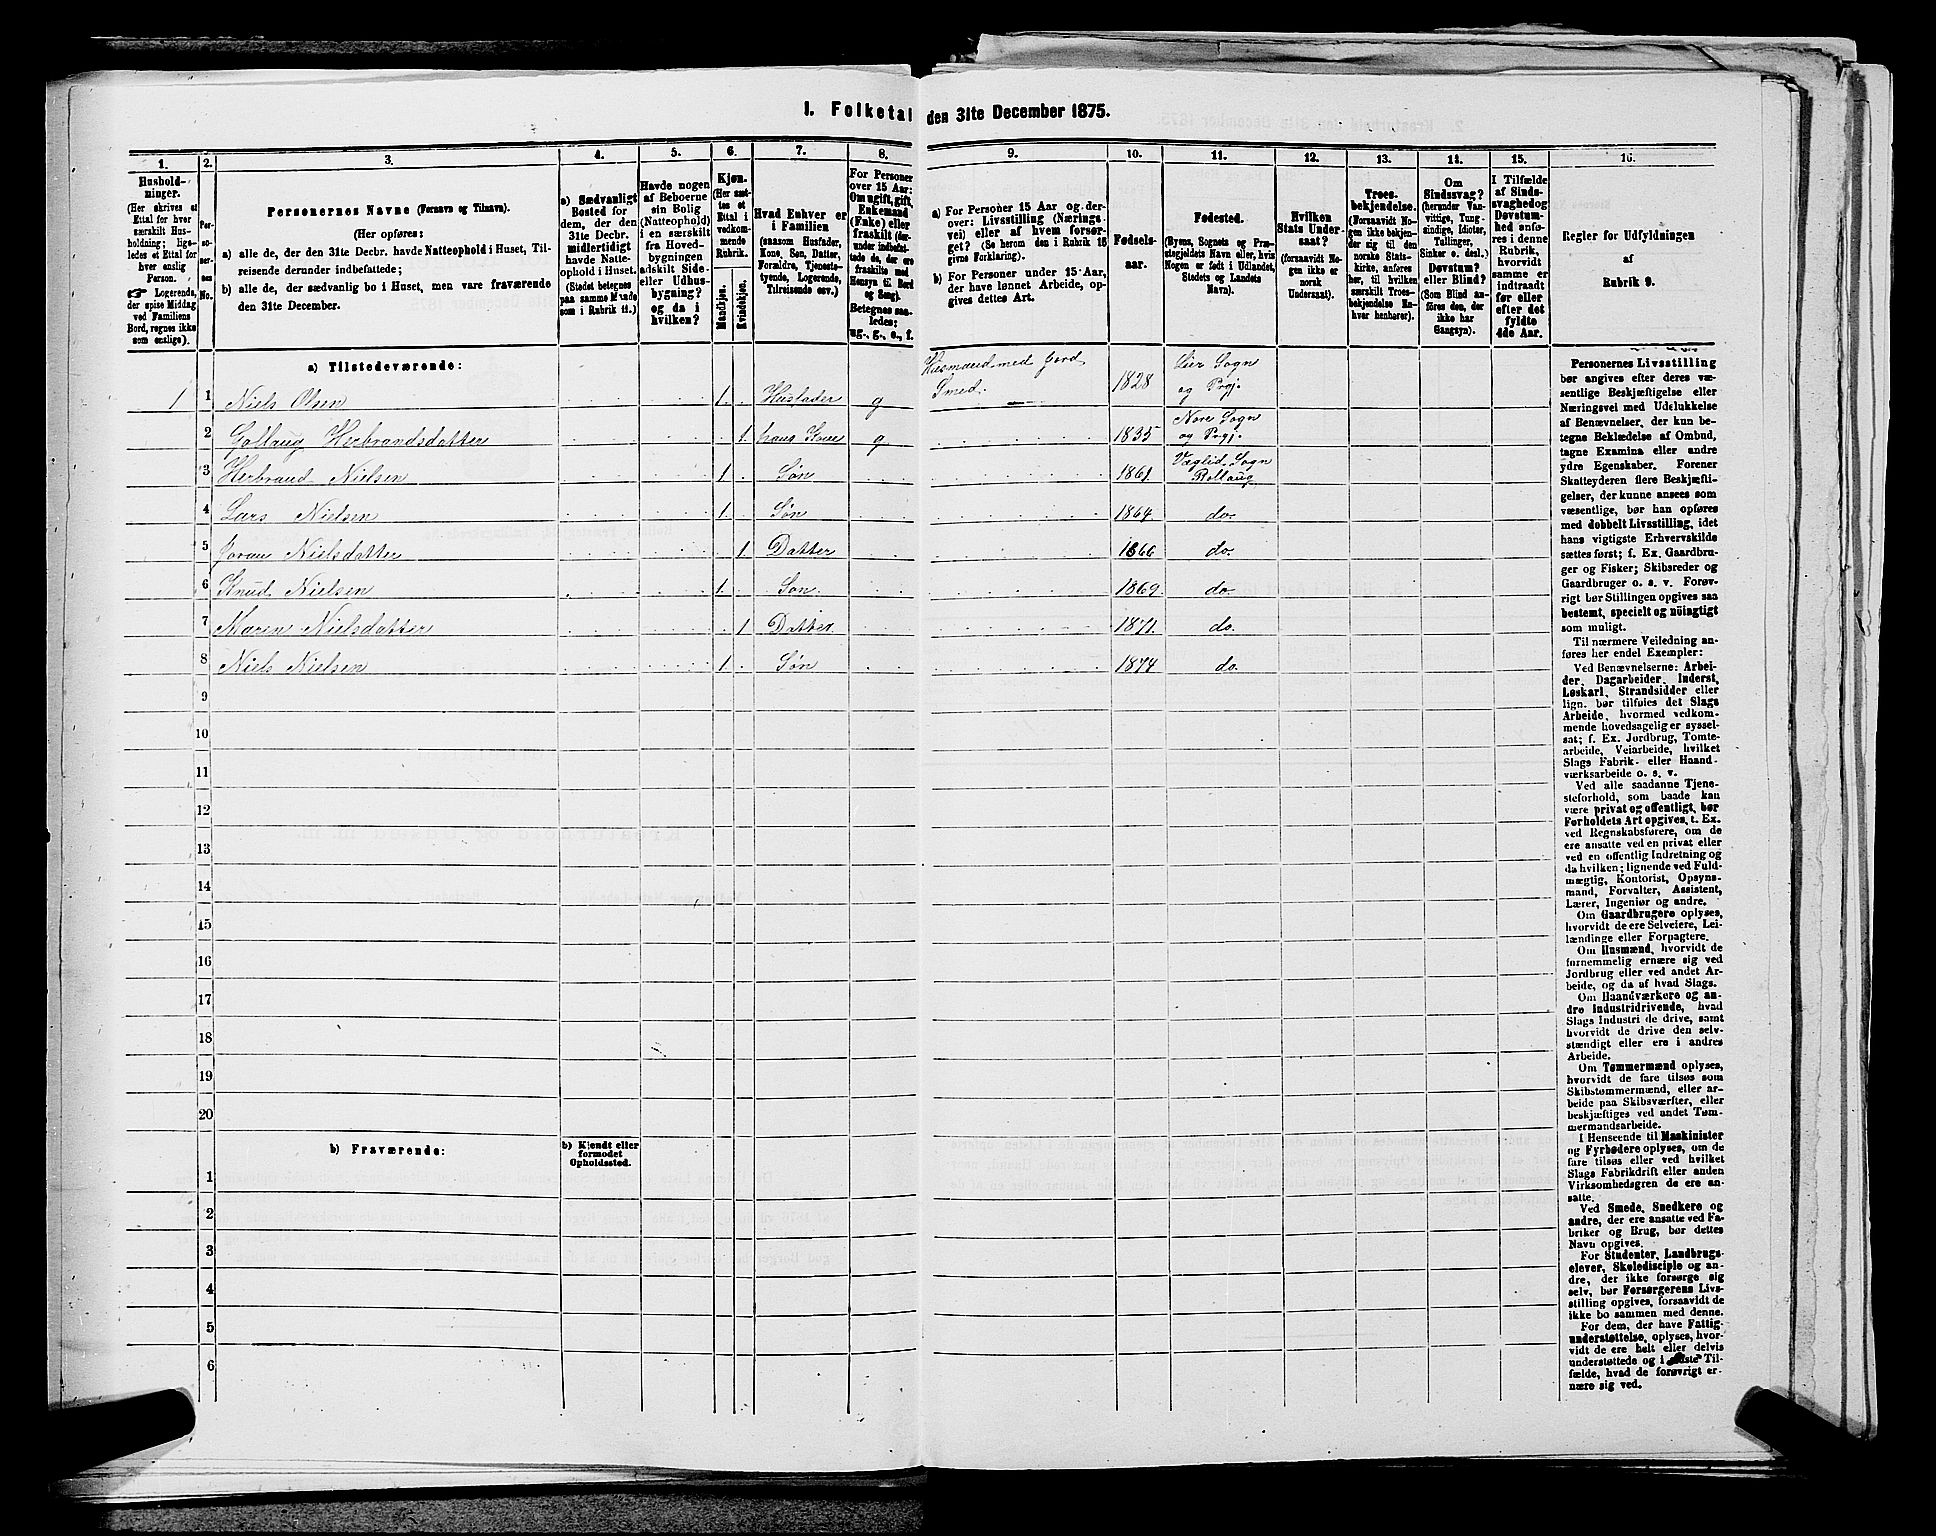 I. Folketal den 31te December 1875.
1. 2. 3. 4. 5. 6. 7. 8. 9. 10. 11. 12. 13. 14. 15. 16.
Hushold-
ninger.
(Her skrives et
Ettal for hver
særskilt Hus-
holdning; lige-
ledes et Ettal for
hver enslig
Person.
☞ Logerende,
der spise Middag
ved Familiens
Bord, regnes ikke
som enlige).
Per-
so-
ner-
nes
No.
Personernes Navne (Fornavn og Tilnavn).
(Her opføres:
a) alle de, der den 31te Decbr. havde Natteophold i Huset, Til-
reisende derunder indbefattede;
b) alle de, der sædvanlig bo i Huset, men vare fraværende
den 31te December.
a) Sædvanligt
Bosted for
dem, der den
31te Decbr.
midlertidigt
havde Natte-
ophold i Huset.
(Stedet betegnes
paa samme Maade
som i Rubrik 11.)
Havde nogen
af Beboerne
sin Bolig
(Natteophold)
i en særskilt
fra Hoved-
bygningen
adskilt Side-
eller Udhus-
bygning?
og da i
hvilken?
Kjøn.
(Her sæt-
tes et
Ettal i
vedkom-
mende
Rubrik.
Mandkjøn.
Kvindekjøn.
Hvad Enhver er
i Familien
(saasom Husfader,
Kone, Søn, Datter,
Forældre, Tjeneste-
tyende, Logerende,
Tilreisende osv.)
For Personer
over 15 Aar:
Om ugift, gift,
Enkemand
(Enke) eller
fraskilt (der-
under indbefat-
tede de, der ere
fraskilte med
Hensyn til Bord
og Seng).
Betegnes saa-
ledes:
ug., g., e., f.
a) For Personer 15 Aar og der-
over: Livsstilling (Nærings-
vei) eller af hvem forsør-
get? (Se herom den i Rubrik 16
givne Forklaring).
b) For Personer under 15 Aar,
der have lønnet Arbeide, op-
gives dettes Art.
Fødsels-
aar.
Fødested.
(Byens, Sognets og Præ-
stegjeldets Navn eller, hvis
Nogen er født i Udlandet,
Stedets og Landets
Navn).
Hvilken
Stats Under-
saat?
(forsaavidt No-
gen ikke er
norsk
Undersaat).
Troes-
bekjendelse.
(Forsaavidt No-
gen ikke bekjen-
der sig til den
norske Stats-
kirke, anføres
her, til hvilken
særskilt Troes-
bekjendelse En-
hver henhører).
Om
Sindssvag?
(herunder Van-
vittige, Tung-
sindige, Idioter,
Tullinger,
Sinker o. desl.)
Døvstum?
eller Blind?
(Som Blind an-
føres den, der
ikke har
Gangsyn).
I Tilfælde
af Sinds-
svaghed og
Døvstum-
hed anfø-
res i denne
Rubrik,
hvorvidt
samme er
indtraadt
før eller
efter det
fyldte
4de Aar.
Regler for Udfyldningen
af
Rubrik 9.
a) Tilstedeværende:
1 1 Niels Olsen 1. Husfader g Husmand med Jord Smed. 1828 Lier Sogn og Prgj.
2 Gollaug Herbrandsdatter 1. hans Kone g 1835 Nore Sogn og Prgj.
3 Herbrand Nielsen 1. Søn 1861. Væglid Sogn Rollaug
4 Lars Nielsen 1. Søn 1864. do.
5 Joran Nielsdatter 1 Datter 1866 do.
6 Knud Nielsen 1. Søn 1869. do.
7 Maren Nielsdatter 1 Datter. 1871. do.
8 Niels Nielsen 1. Søn 1874 do.
9
10
11
12
13
14
15
16
17
18
19
20
b) Fraværende:
b) Kjendt eller
formodet
Opholdssted.
1
2
3
4
5
6
Personernes Livsstilling
bør angives efter deres væ-
sentlige Beskjæftigelse eller
Næringsvei med Udelukkelse
af Benævnelser, der kun be-
tegne Beklædelse af Ombud,
tagne Examina eller andre
ydre Egenskaber. Forener
Skatteyderen flere Beskjæfti-
gelser, der kunne ansees som
væsentlige, bør han opføres
med dobbelt Livsstilling, idet
hans vigtigste Erhvervskilde
sættes først; f. Ex. Gaardbru-
ger og Fisker; Skibsreder og
Gaardbruger o. s. v. Forøv-
rigt bør Stillingen opgives saa
bestemt, specielt og nøiagtigt
som muligt.
Til nærmere Veiledning an-
føres her endel Exempler:
Ved Benævnelserne: Arbei-
der, Dagarbeider, Inderst,
Løskarl, Strandsidder eller
lign. bør tilføies det Slags
Arbeide, hvormed vedkom-
mende hovedsagelig er syssel-
sat; f. Ex. Jordbrug, Tomte-
arbeide, Veiarbeide, hvilket
Slags Fabrik- eller Haand-
værksarbeide o. s. v.
Ved alle saadanne Tjene-
steforhold, som baade kan
være privat og offentligt, bør
Forholdets Art opgives, t. Ex.
ved Regnskabsførere, om de
ere ansatte ved en privat eller
ved en offentlig Indretning og
da hvilken; lignende ved Fuld-
mægtig, Kontorist, Opsyns-
mand, Forvalter, Assistent,
Lærer, Ingeniør og andre.
Om Gaardbrugere oplyses,
hvorvidt de ere Selveiere, Lei-
lændinge eller Forpagtere.
Om Husmænd, hvorvidt de
fornemmelig ernære sig ved
Jordbrug eller ved andet Ar-
beide, og da af hvad Slags.
Om Haandværkere og an-
dre Industridrivende, hvad
Slags Industri de drive, samt
hvorvidt de drive den selv-
stændigt eller ere i andres
Arbeide.
Om Tømmermænd oplyses,
hvorvidt de fare tilsøs som
Skibstømmermænd, eller ar-
beide paa Skibsværfter, eller
beskjæftiges ved andet Tøm-
mermandsarbeide.
I Henseende til Maskinister
og Fyrbødere oplyses, om de
fare tilsøs eller ved hvilket
Slags Fabrikdrift eller anden
Virksomhedsgren de ere an-
satte.
Ved Smede, Snedkere og
andre, der ere ansatte ved Fa-
briker og Brug, bør dettes
Navn opgives.
For Studenter, Landbrugs-
elever, Skoledisciple og an-
dre, der ikke forsørge sig
selv, bør Forsørgerens Livs-
stilling opgives, forsaavidt de
ikke bo sammen med denne.
For dem, der have Fattig-
understøttelse, oplyses, hvor-
vidt de ere helt eller delvis
understøttede og i sidste Til-
fælde, hvad de forøvrigt er-
nære sig ved.